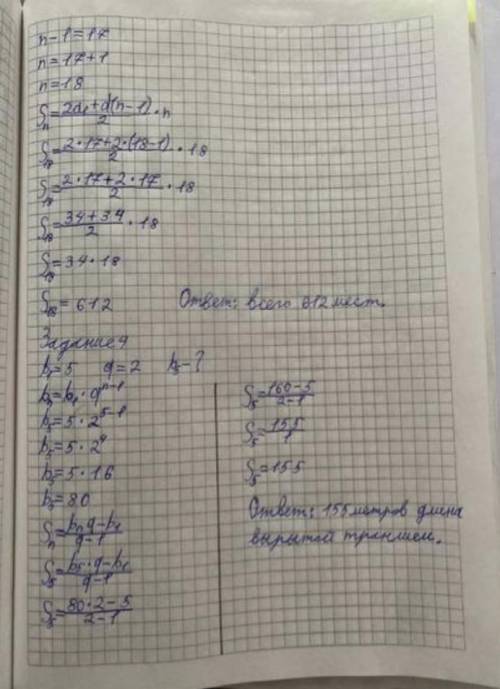 n-1=17
n=17+1
n=18
Sₙ=(2a₁+d(n-1))/2·n
S₁₈=(2·17+2·(18-1))/2·18
S₁₈=(2·17+2·17)/2·18
S₁₈=(34+34)/2·18
S₁₈=34·18
S₁₈=612 Ответ: всего 612 мест.
Задание 4
b₁=5 q=2 b₅-?
b₅=b₁·qⁿ⁻¹
b₅=5·2⁵⁻¹
b₅=5·2⁴
b₅=5·16
b₅=80
Sₙ=(bₙq-b₁)/(q-1)
S₅=(b₅·q-b₁)/(q-1)
S₅=(80·2-5)/(2-1)
S₅=(160-5)/(2-1)
S₅=155/1
S₅=155
Ответ: 155 метров длина
вырытой траншеи.